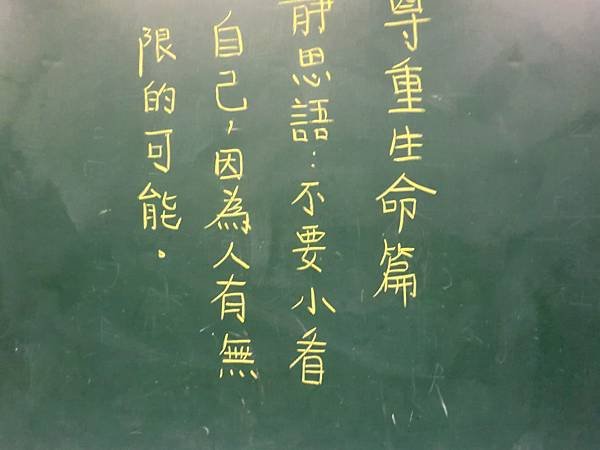 尊重生命篇
靜思語:不要小看
自己,因為人有無
限的可能。